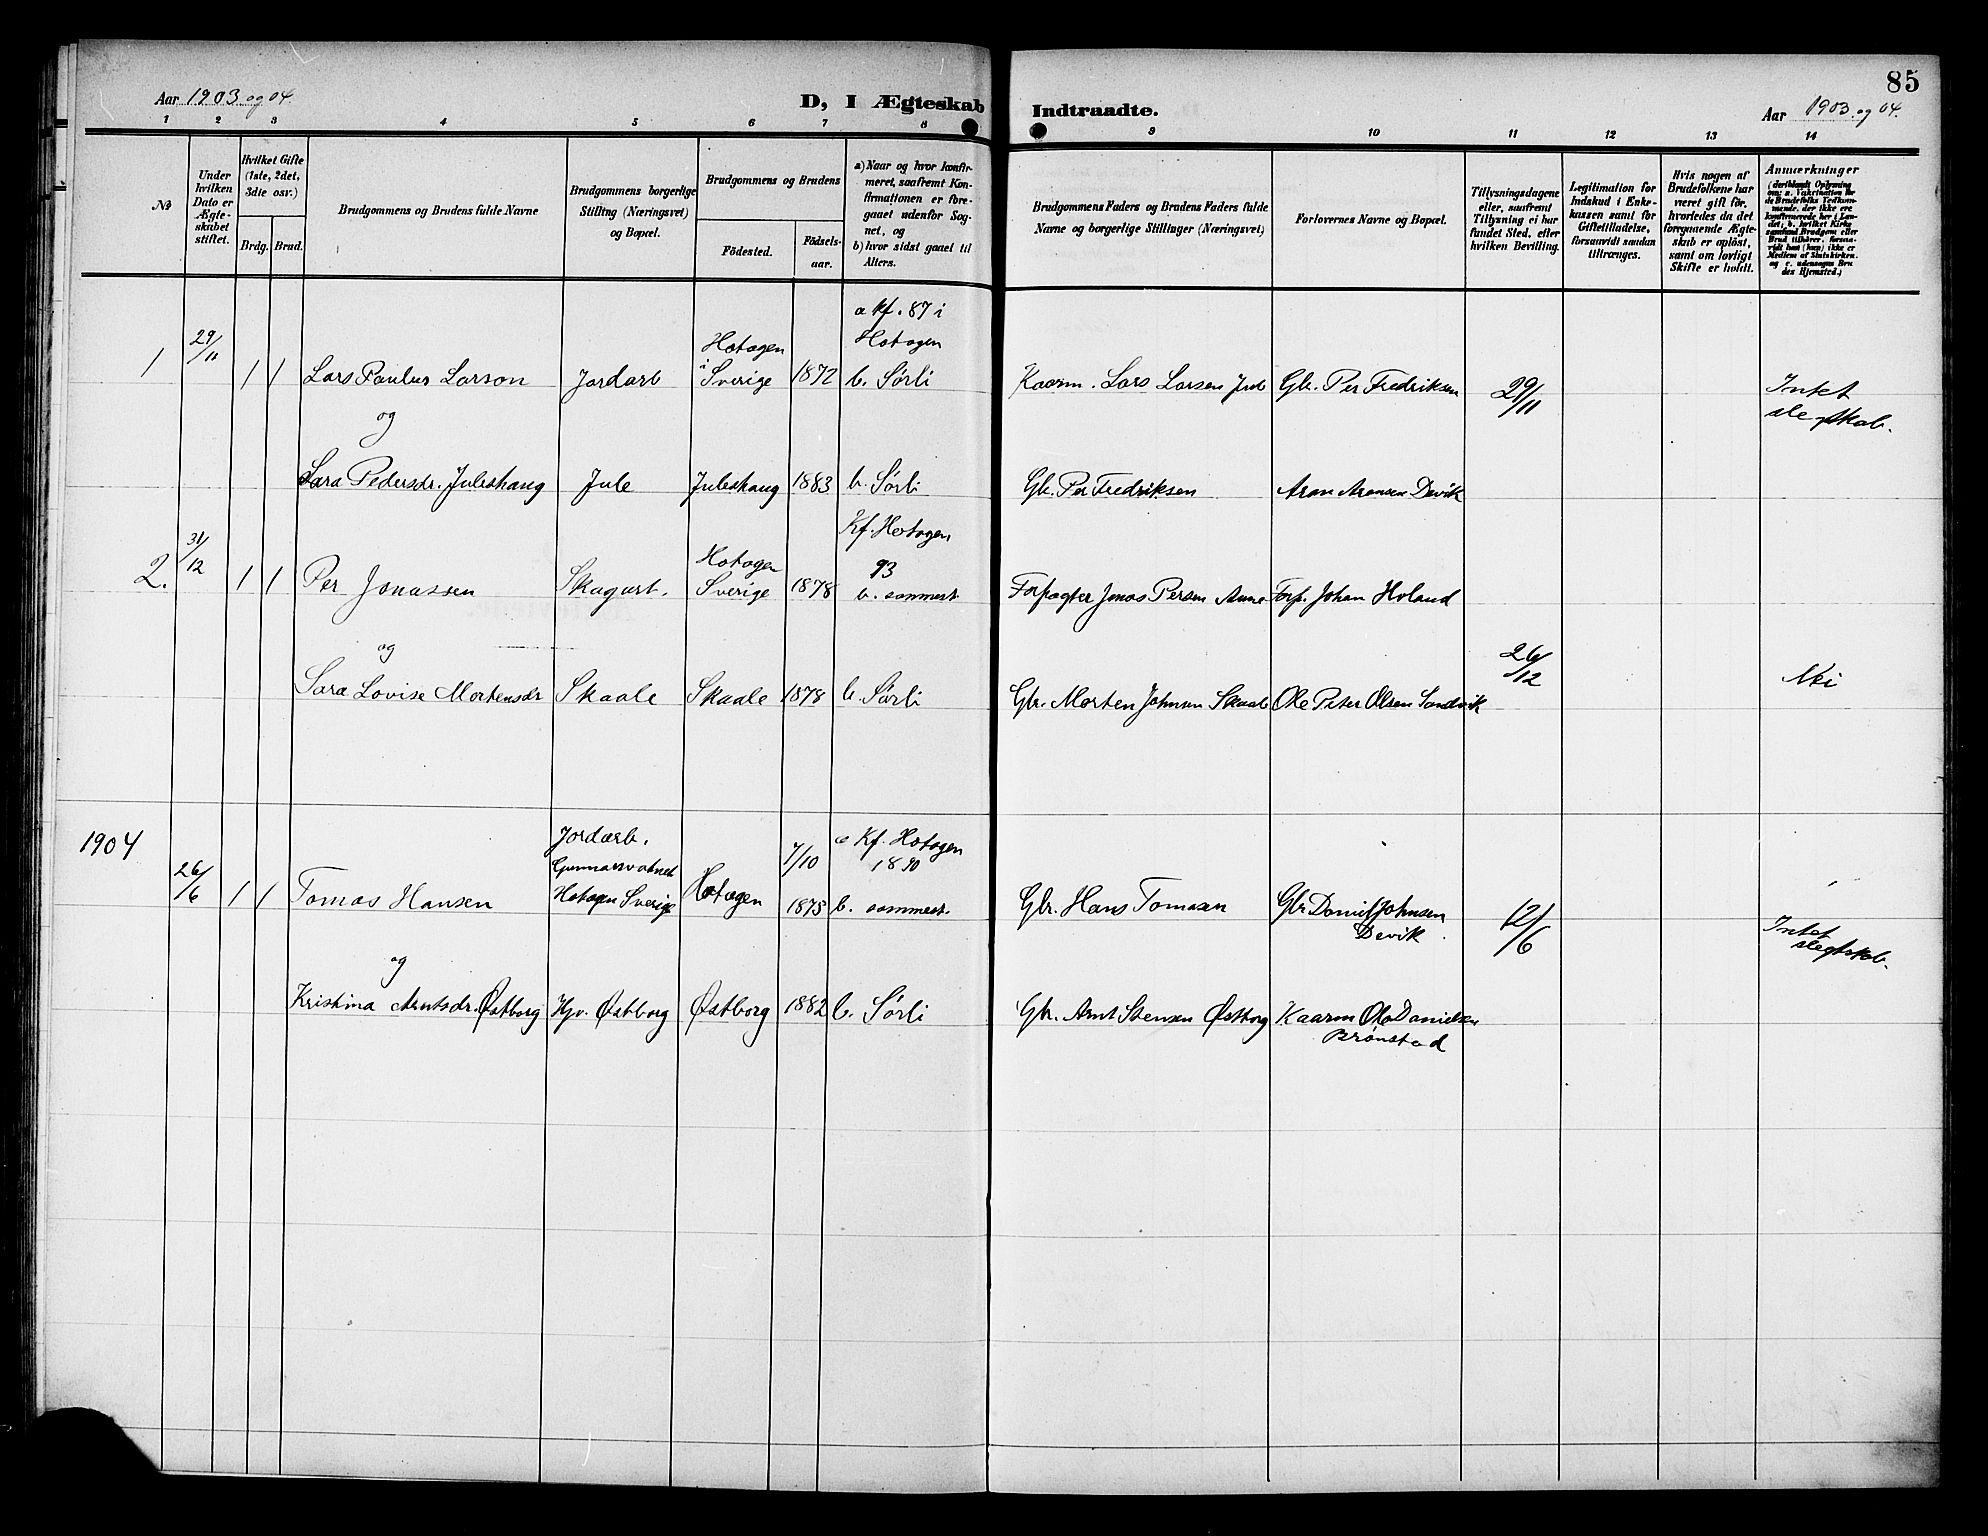 85
Aar 1903 og 04.
D, I Ægteskab
Indtraadte.
Aar 1903 og 04.
1 2 3 4 5 6 7 8
9 10 11 12 13 14
No
Under
hvilken
Dato er
Ægte-
skabet
stiftet.
Hvilket Gifte
(1ste, 2det,
3die osv.)
Brdg.
Brud.
Brudgommens og Brudens fulde Navne
Brudgommens borgerlige
Stilling (Næringsvei)
og Bopæl.
Brudgommens og Brudens
Födested.
Födsels-
aar.
a) Naar og hvor konfir-
meret, saafremt Kon-
firmationen er fore-
gaaet udenfor Sog-
net, og
b) hvor sidst gaaet til
Alters.
Brudgommens Faders og Brudens Faders fulde
Navne og borgerlige Stillinger (Næringsvei)
Forlovernes Navne og Bopæl.
Tillysningsdagene
eller, saafremt
Tillysning ei har
fundet Sted, efter
hvilken Bevilling.
Legitimation for
Indskud i Enke-
kassen samt for
Giftetilladelse,
forsaavidt saadan
tiltrænges.
Hvis nogen af
Brudefolkene har
været gift før,
hvorledes da det
foregaaende Ægte-
skab er oplöst,
samt om lovligt
Skifte er holdt.
Anmærkninger
(deriblandt Oplysning
om: a. Vakcination for
de Brudefolks Vedkom-
mende, der ikke ere
konfirmerede her i Lan-
det, b. hvilket Kirke-
samfund Brudgom eller
Brud tilhører, forsaa-
vidt han (hun) ikke er
Medlem af Statskirken,
og c. udensogns Bru-
des Hjemsted.)
1 29/11 1 1 Lars Paulus Larson Jordarb Hotagen i Sverige 1872 a Kf. 87 i Hotagen b. Sørli Kaarm. Lars Larsen Gb. Per Fredriksen 29/11 Intet slegtskab.
og
Sara Pedersdr. Juleshaug Jule Juleshaug 1883 b. Sørli Gb. Per Fredriksen Aron Aronsen Devik
2. 31/12 1 1 Per Jonassen Skogarb. Hotagen Sverige 1878 Kf. Hotagen 93 b. sammest. Forpagter Jonas Persen Forp. Johan Holand
og
Sara Lovise Mortensdr Skaale Skaale 1878 b. Sørli Gbr. Morten Johnsen Skaale Ole Peter Olsen Sandvik 26/12 Nei
1904
26/6 1 1 Tomas Hansen Jordarb. Gunnarsvatnet Hotagen Sverige Hotagen 7/10 1875 a Kf. Hotagen 1890 b. sammest. Gbr. Hans Tomasen Gbr Daniel Johnsen Devik 12/6 Intet slegtskab.
og
Kristina Arntsdr. Østborg Hjv. Østborg Østborg 1882 b. Sørli Gbr. Arnt Stensen Østborg Kaarm Ole Danielsen Brønstad